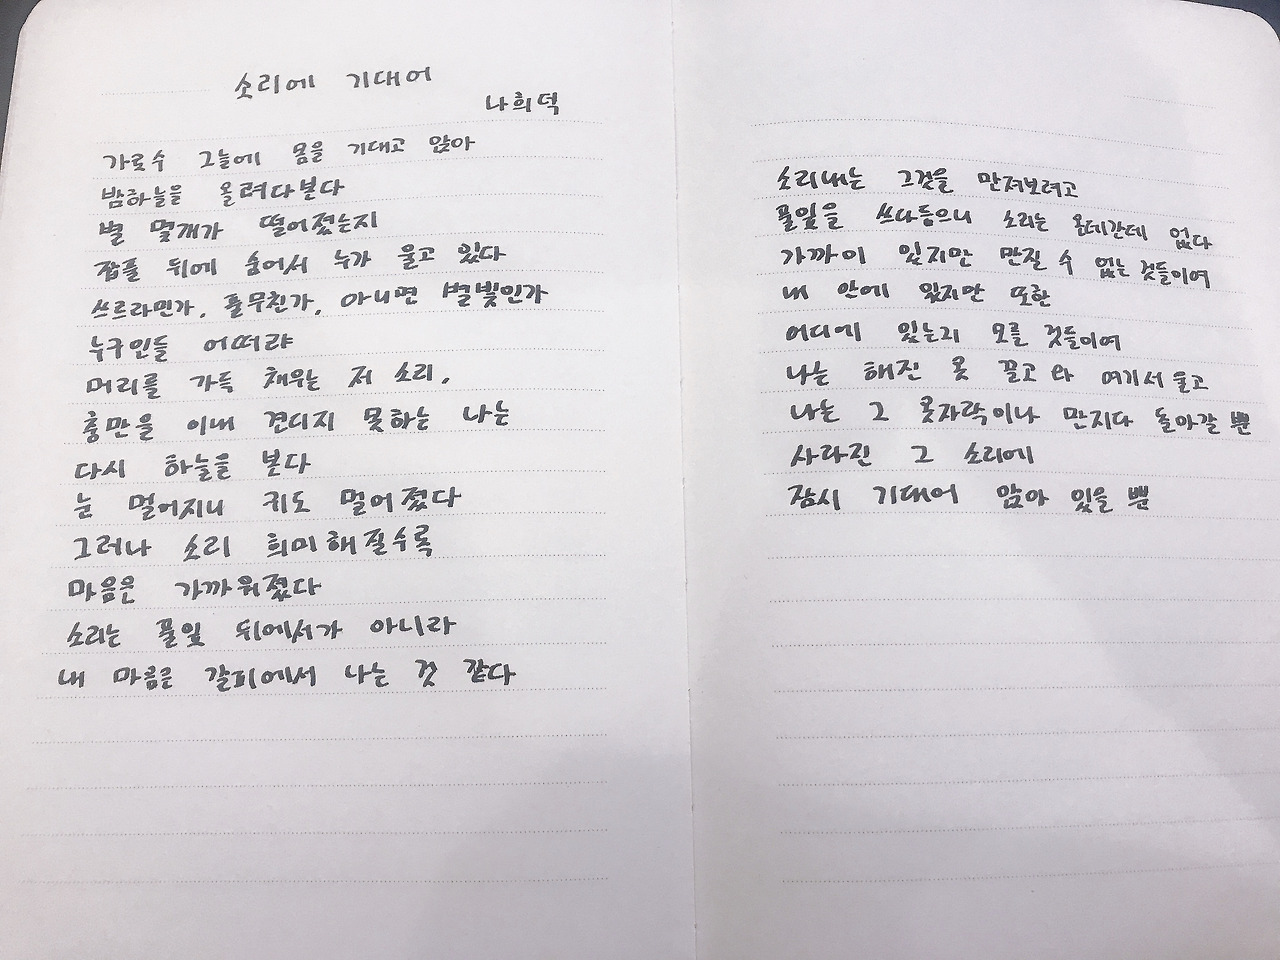 소리에 기대어
나희덕
가로수 그늘에 몸을 기대고 앉아
밤하늘을 올려다본다
별 몇개가 떨어졌는지
잡풀 뒤에 숨어서 누가 울고 있다
쓰르라민가, 풀무친가, 아니면 별빛인가
누구인들 어떠랴
머리를 가득 채우는 저 소리,
충만을 이내 견디지 못하는 나는
다시 하늘을 본다
눈 멀어지니 귀도 멀어졌다
그러나 소리 희미해질수록
마음은 가까워졌다
소리는 풀잎 뒤에서가 아니라
내 마음은 갈피에서 나는 것 같다
소리내는 그것을 만져보려고
풀잎을 쓰다듬으니 소리는 온데간데 없다
가까이 있지만 만질 수 없는 것들이여
내 안에 있지만 또한
어디에 있는지 모를 것들이여
나는 해진 옷 끌고 와 여기서 울고
나는 그 옷자락이나 만지다 돌아갈 뿐
사라진 그 소리에
잠시 기대어 앉아 있을 뿐